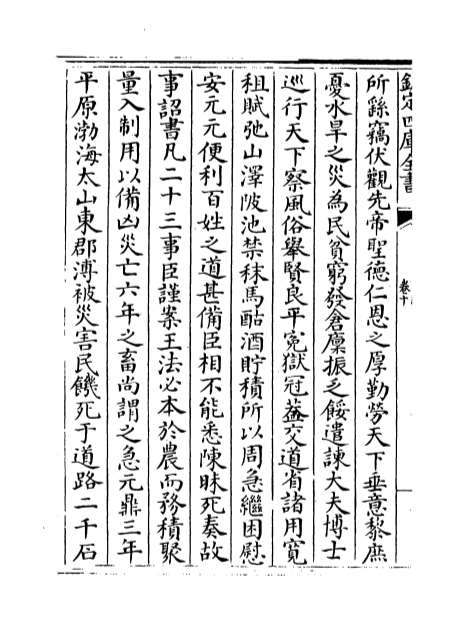 欽定四庫全書
卷十
所繇竊伏觀先帝聖德仁恩之厚勤勞天下垂意黎庶
憂水旱之災為民貧窮發倉廩振乏餒遣諫大夫博士
巡行天下察風俗舉賢良平冤獄冠蓋交道省諸用寬
租賦弛山澤陂池禁秣馬酤酒貯積所以周急繼困慰
安元元便利百姓之道甚備臣相不能悉陳昧死奏故
事詔書凡二十三事臣謹案王法必本於農而務積聚
量入制用以備凶災亡六年之畜尚謂之急元鼎三年
平原渤海太山東郡溥被災害民饑死于道路二千石